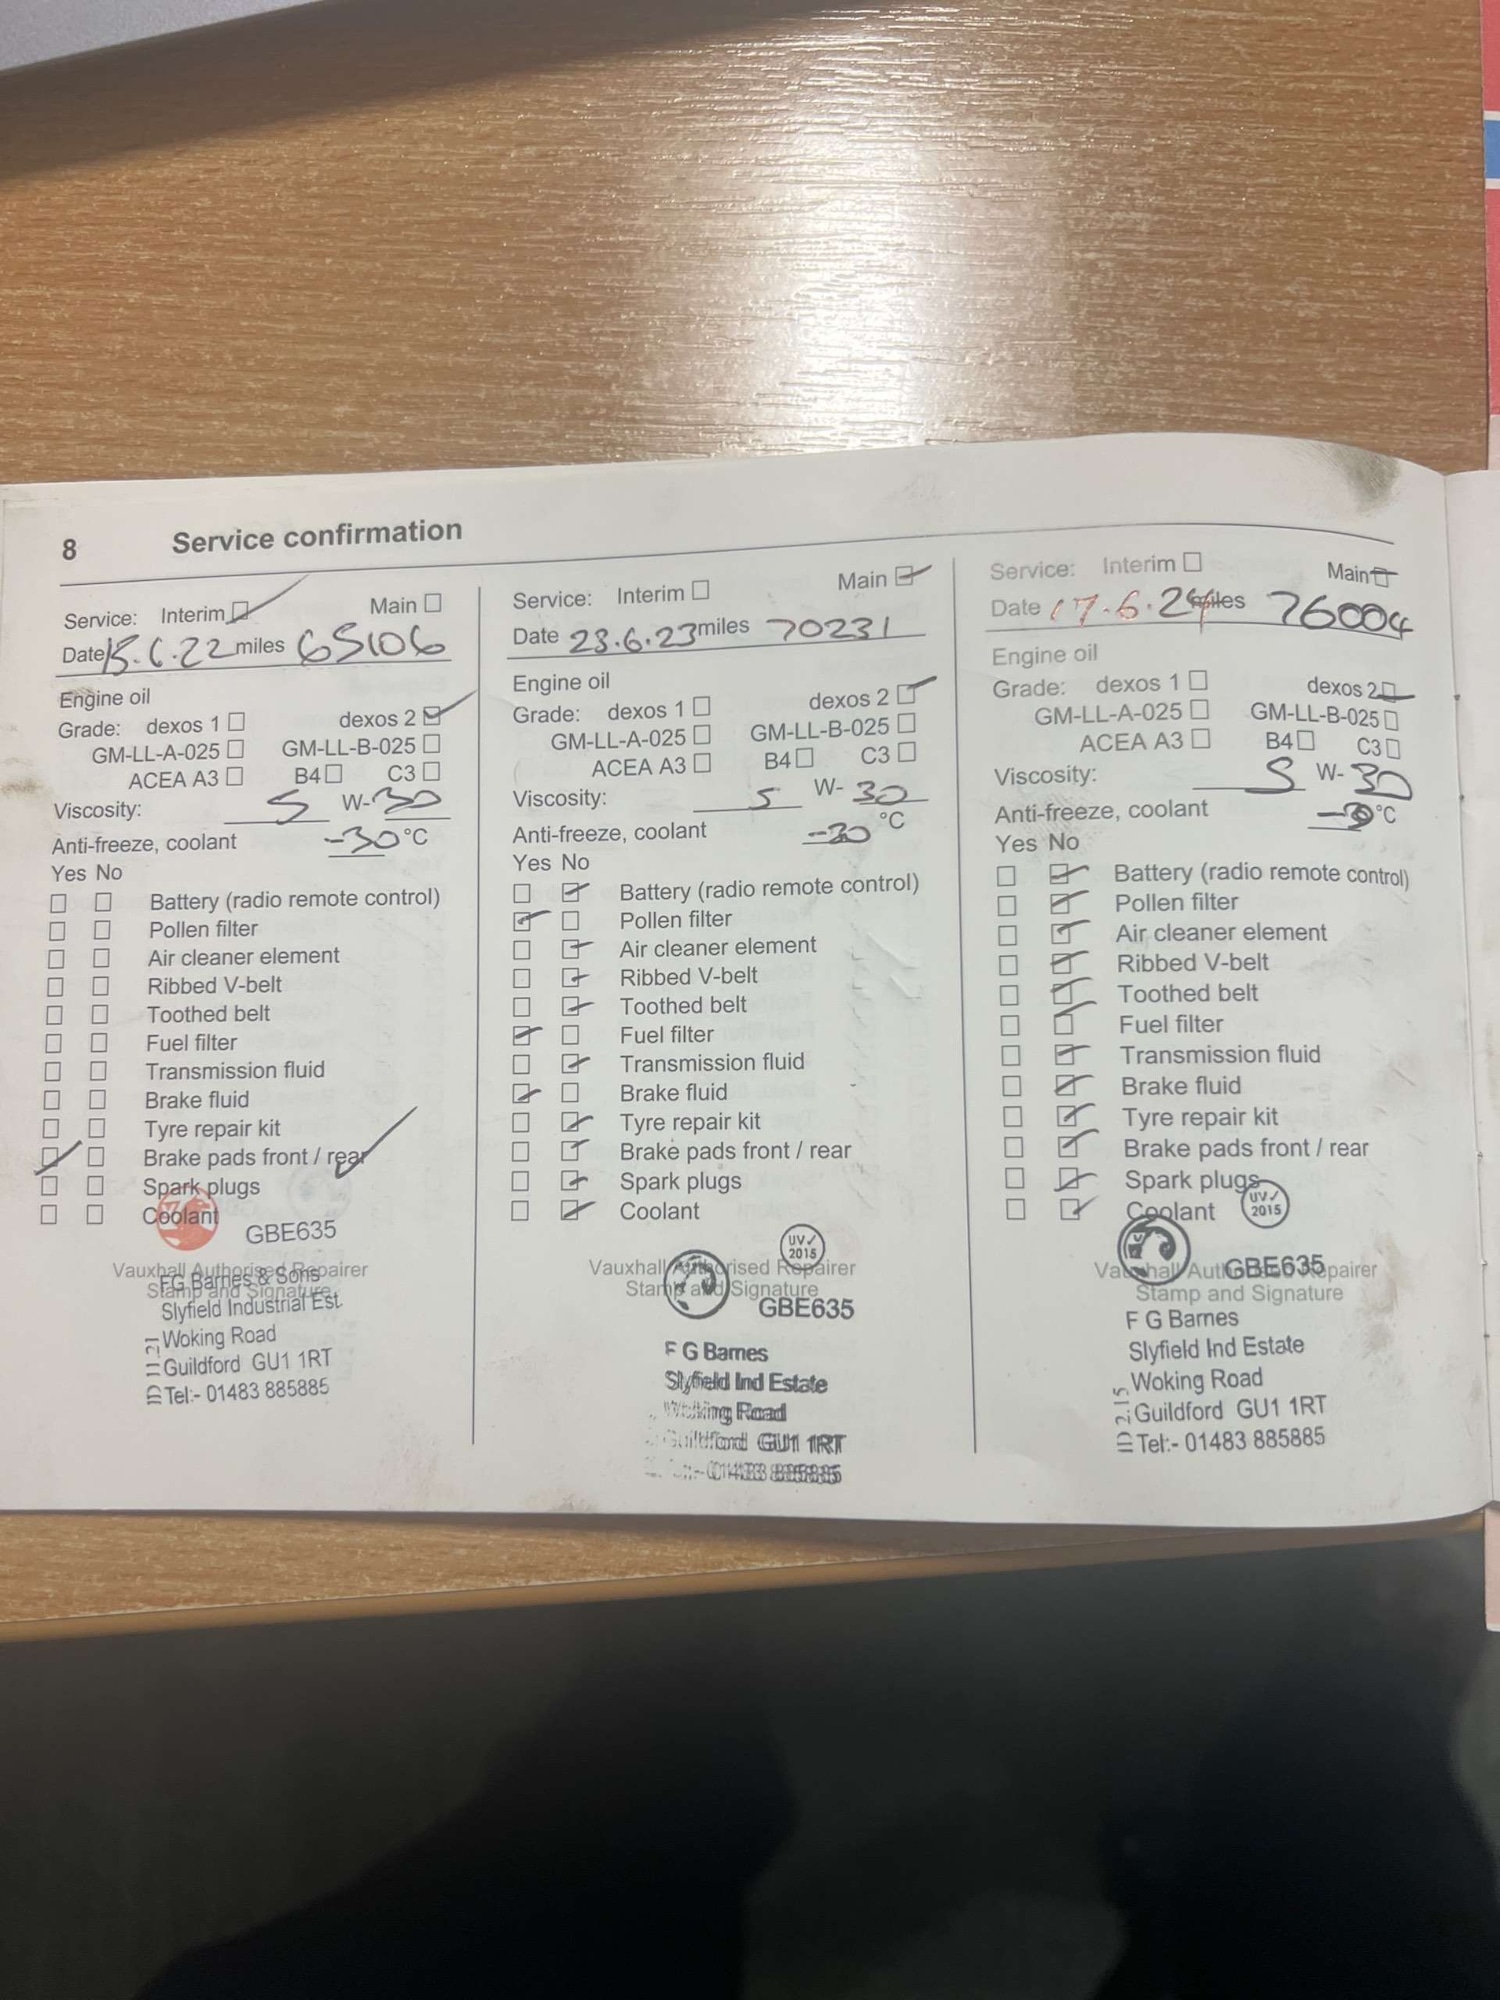 8 Service confirmation
Service: Interim Main
Date 15.6.22 miles 65106
Engine oil
Grade: dexos 1 dexos 2
GM-LL-A-025 GM-LL-B-025
ACEA A3 B4 C3
Viscosity: 5 W-30
Anti-freeze, coolant -30 °C
Yes No
Battery (radio remote control)
Pollen filter
Air cleaner element
Ribbed V-belt
Toothed belt
Fuel filter
Transmission fluid
Brake fluid
Tyre repair kit
Brake pads front / rear
Spark plugs
Coolant
GBE635
Vauxhall Authorised Repairer
Stamp and Signature
FG Barnes & Sons
Slyfield Industrial Est.
Woking Road
Guildford GU1 1RT
Tel:- 01483 885885
Service: Interim Main
Date 23.6.23 miles 70231
Engine oil
Grade: dexos 1 dexos 2
GM-LL-A-025 GM-LL-B-025
ACEA A3 B4 C3
Viscosity: 5 W- 30
Anti-freeze, coolant -30 °C
Yes No
Battery (radio remote control)
Pollen filter
Air cleaner element
Ribbed V-belt
Toothed belt
Fuel filter
Transmission fluid
Brake fluid
Tyre repair kit
Brake pads front / rear
Spark plugs
Coolant
UV✓
2015
Vauxhall Authorised Repairer
Stamp and Signature
GBE635
F G Barnes
Slyfield Ind Estate
Woking Road
Guildford GU1 1RT
01483 885885
Service: Interim Main
Date 17.6.24 miles 76004
Engine oil
Grade: dexos 1 dexos 2
GM-LL-A-025 GM-LL-B-025
ACEA A3 B4 C3
Viscosity: 5 W-30
Anti-freeze, coolant °C
Yes No
Battery (radio remote control)
Pollen filter
Air cleaner element
Ribbed V-belt
Toothed belt
Fuel filter
Transmission fluid
Brake fluid
Tyre repair kit
Brake pads front / rear
Spark plugs
Coolant
UV✓
2015
GBE635
Vauxhall Authorised Repairer
Stamp and Signature
F G Barnes
Slyfield Ind Estate
Woking Road
Guildford GU1 1RT
Tel:- 01483 885885